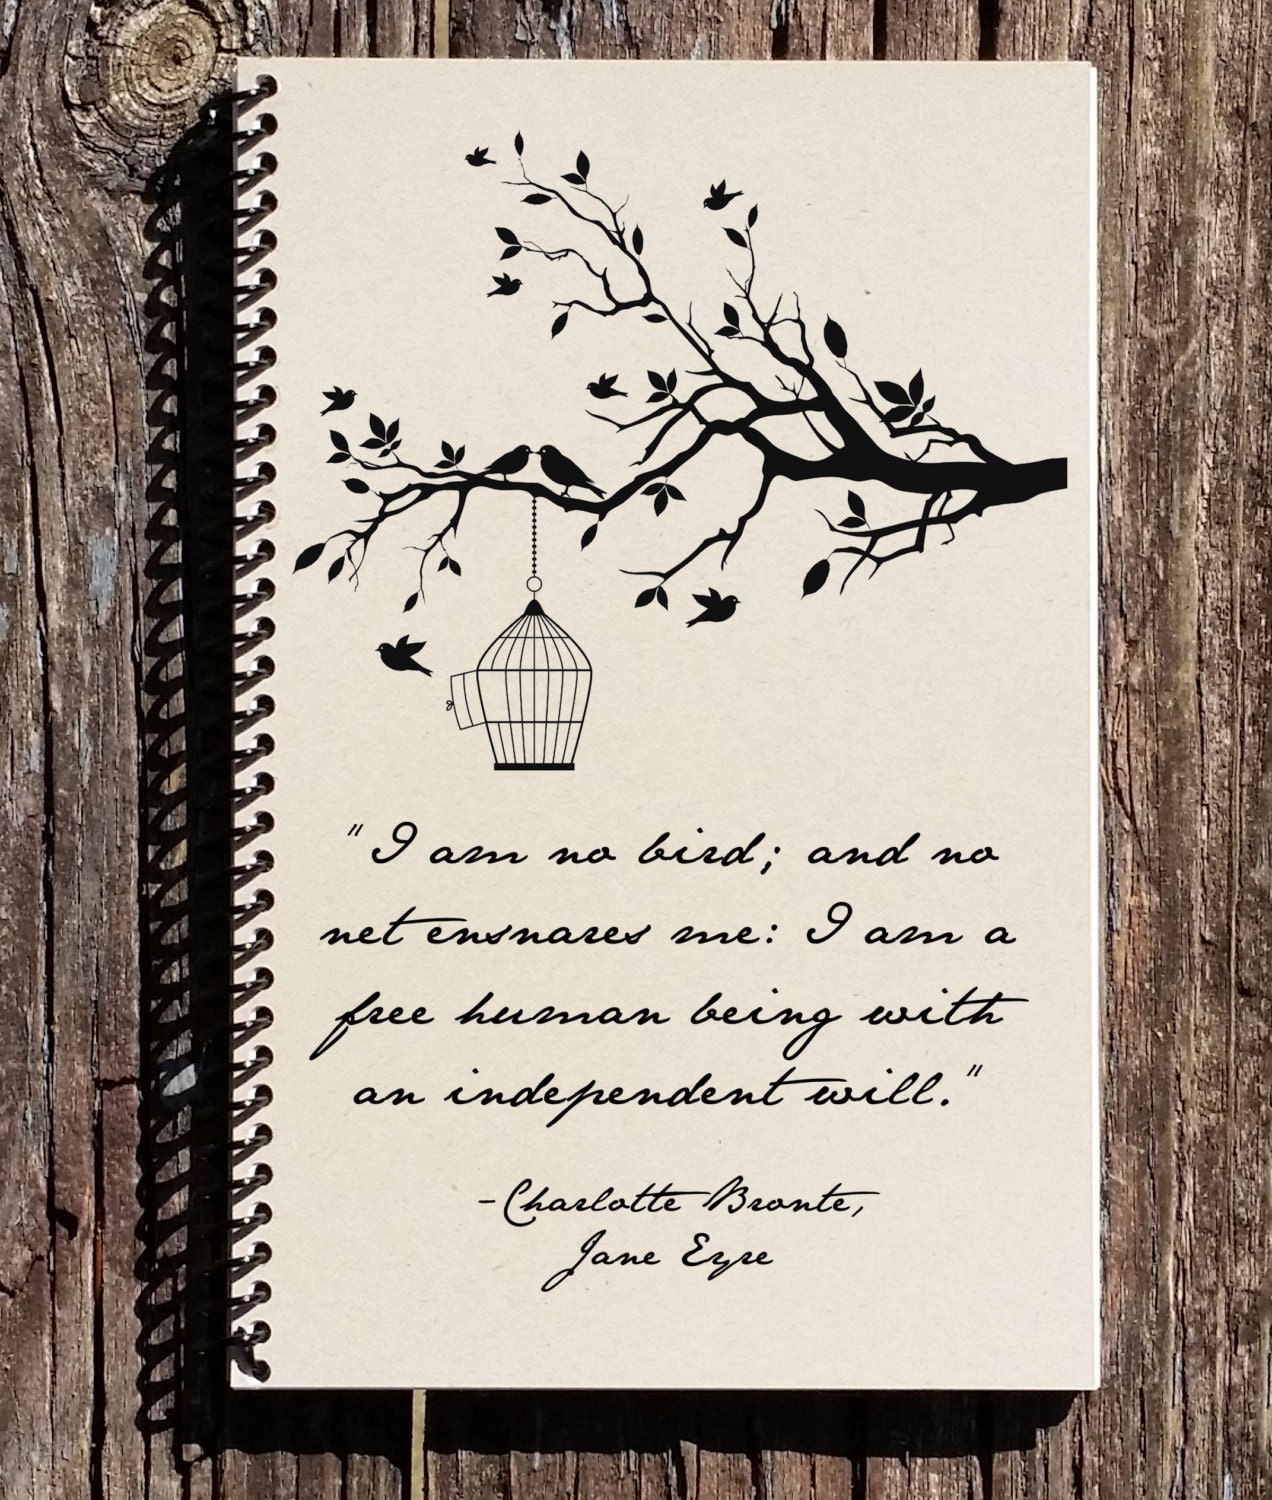 "I am no bird; and no
net ensnares me: I am a
free human being with
an independent will."
-Charlotte Bronte,
Jane Eyre